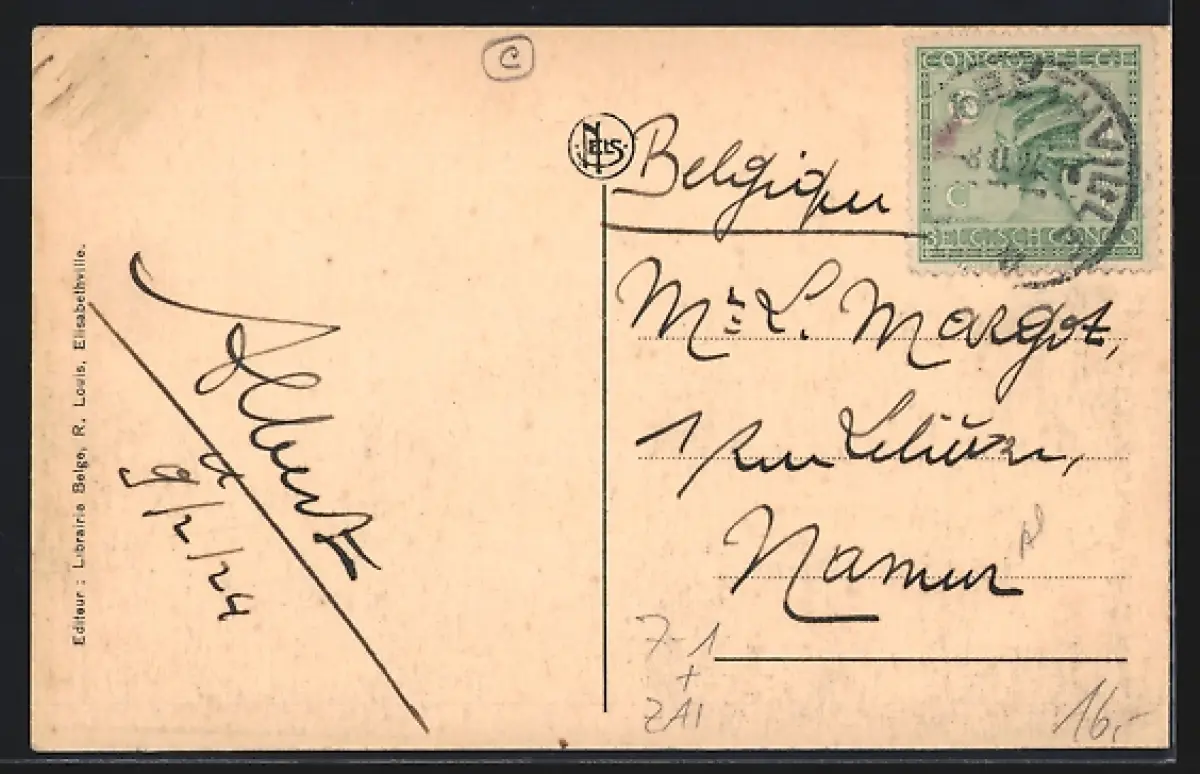 C
CONGO BELGE
C
BELGISCH CONGO
NELS
Belgique
Mr L. Margot,
1 rue Lelièvre,
Namur
Albert
9/2/24
Editeur : Librairie Belge, R. Louis, Elisabethville.
7-1
+
ZAI
16,-